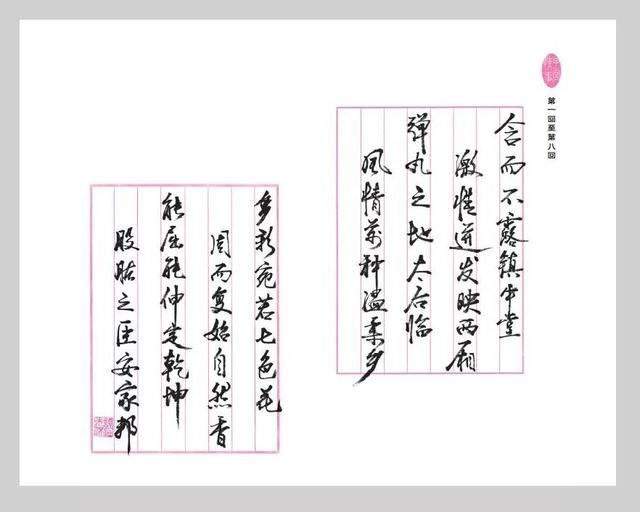 第一回至第八回
含而不露镇中堂
激情迸发映两厢
弹丸之地太后临
风情万种温柔乡
多彩宛若七色花
周而复始自然香
能屈能伸定乾坤
股肱之臣安家邦